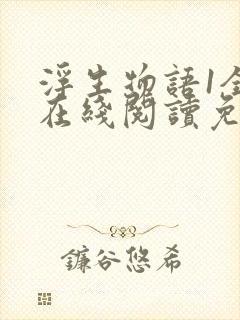 浮生物語1全
在綫閱讀免
鐮谷悠希